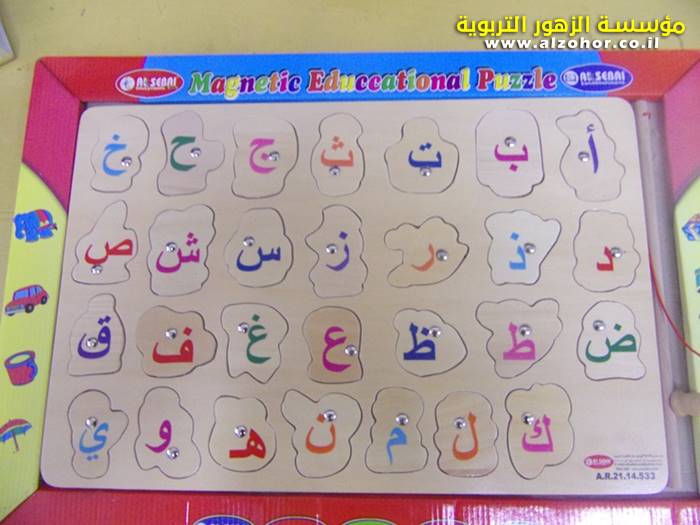 مؤسسة الزهور التربوية
www.alzohor.co.il
AL SEBAI Magnetic Educcational Puzzle AL SEBAI
أ ب ت ث ج ح خ
د ذ ر ز س ش ص
ض ط ظ ع غ ف ق
ك ل م ن هـ و ي
AL SEBAI
A.R.21.14.533